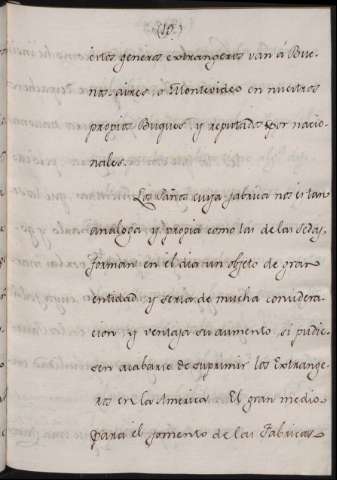 (10.)
estos generos extrangeros van á Bue-
nos-aires, o Montevideo en nuestros
propios Buques, y reputados por nacio-
nales.
Los Paños cuya fabrica nos es tan
analoga y propia como las de las sedas,
forman en el dia un objeto de gran
entidad, y seria de mucha considera-
cion y ventaja su aumento, si pudie-
sen acabarse de suprimir los Extrange-
ros en la America. El gran medio
para el fomento de las Fabricas